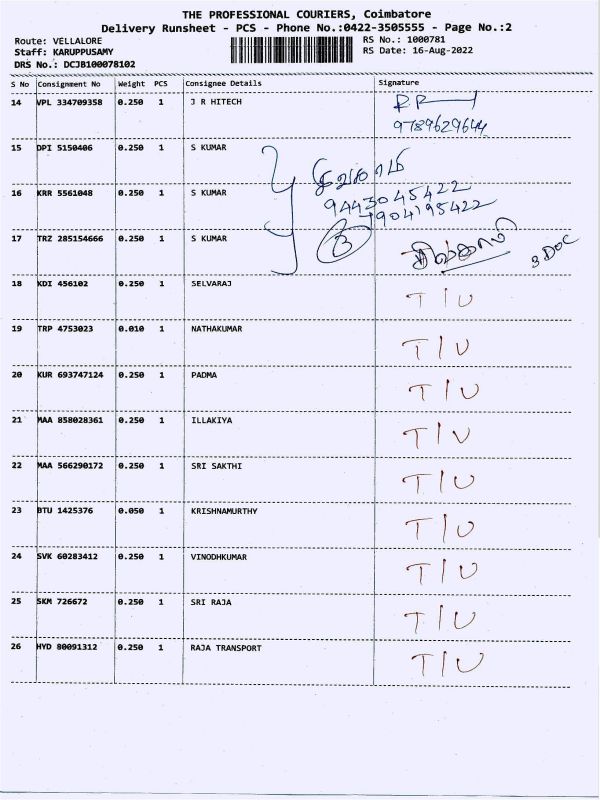 THE PROFESSIONAL COURIERS, Coimbatore
Delivery Runsheet - PCS - Phone No.:0422-3505555 - Page No.:2
Route: VELLALORE
RS No.: 1000781
Staff: KARUPPUSAMY
RS Date: 16-Aug-2022
DRS No.: DCJB100078102
S No Consignment No Weight PCS Consignee Details Signature
14 VPL 334709358 0.250 1 J R HITECH
9789629644
15 DPI 5150406 0.250 1 S KUMAR
16 KRR 5561048 0.250 1 S KUMAR
9443045422
7904195422
17 TRZ 285154666 0.250 1 S KUMAR
3
3 DOC
18 KDI 456102 0.250 1 SELVARAJ T/U
19 TRP 4753023 0.010 1 NATHAKUMAR T/U
20 KUR 693747124 0.250 1 PADMA T/U
21 MAA 858028361 0.250 1 ILLAKIYA T/U
22 MAA 566290172 0.250 1 SRI SAKTHI T/U
23 BTU 1425376 0.050 1 KRISHNAMURTHY T/U
24 SVK 60283412 0.250 1 VINODHKUMAR T/U
25 SKM 726672 0.250 1 SRI RAJA T/U
26 HYD 80091312 0.250 1 RAJA TRANSPORT T/U